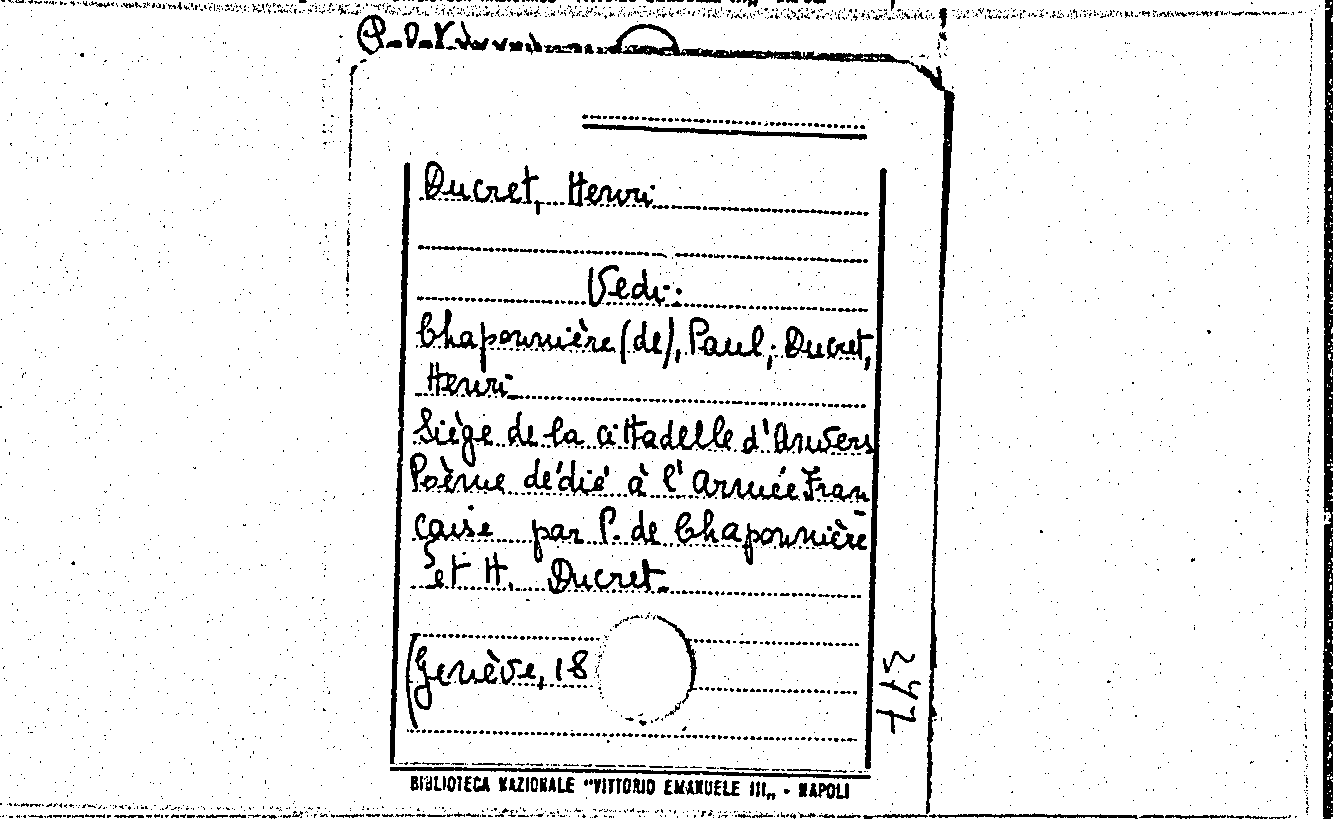 Ducret, Henri
Vedi:
Chaponnière (de), Paul; Ducret,
Henri
Siège de la cittadelle d'Anvers
Poème dédié à l'Armée Fran
çaise par P. de Chaponnière
et H. Ducret.
(Genève, 18
BIBLIOTECA NAZIONALE "VITTORIO EMANUELE III„ - NAPOLI